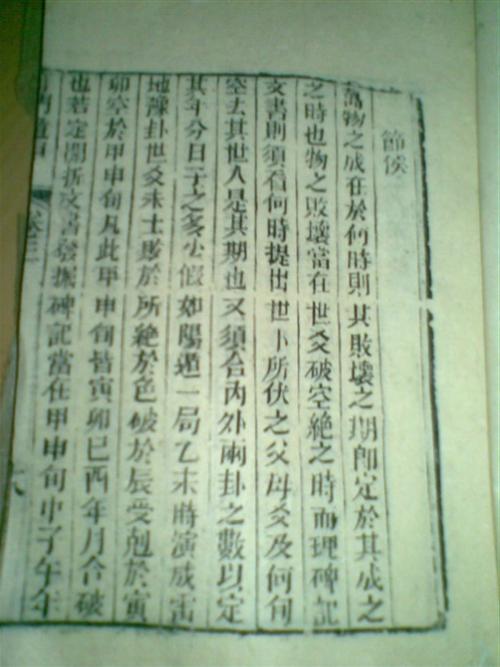 節候
萬物之成在於何時則其敗壞之期即定於其成之
之時也物之敗壞當在世爻破空絶之時而理碑記
文書則須看何時提出世卜所伏之父母爻及何旬
空去其世人是其期也又須合內外兩卦之數以定
其年分日子之多少假如陽遁一局乙未時演成雷
地豫卦世爻未土敗於所絶於色破於辰受剋於寅
卯空於甲申旬凡此甲申旬皆寅卯巳酉年月合破
也若定開折文書發掘碑記當在甲申旬中子午年
卷三
六